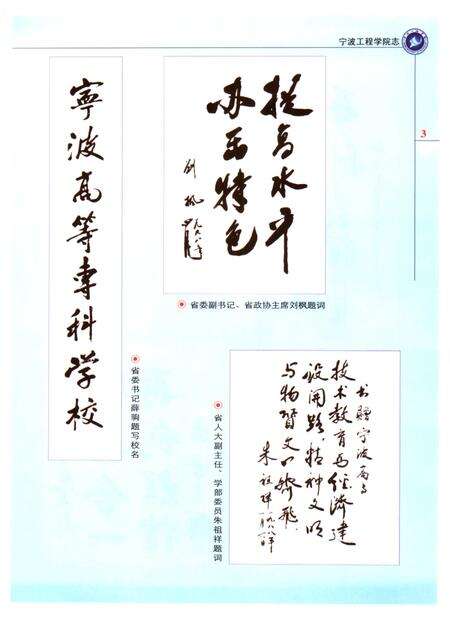 宁波工程学院志
3
寧波高等专科学校
省委书记薛驹题写校名
提高水平
办出特色
刘枫
一九八八年
省委副书记、省政协主席刘枫题词
书赠宁波高专
技术教育为经济建
设开路，精神文明
与物质文明齐飞。
朱祖祥
省人大副主任、学部委员朱祖祥题词